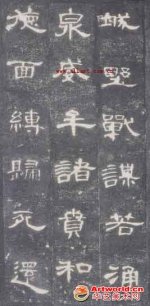 城埜戰謀若涌
泉威牟諸賁和
德面縛歸死還
Artworld.cn